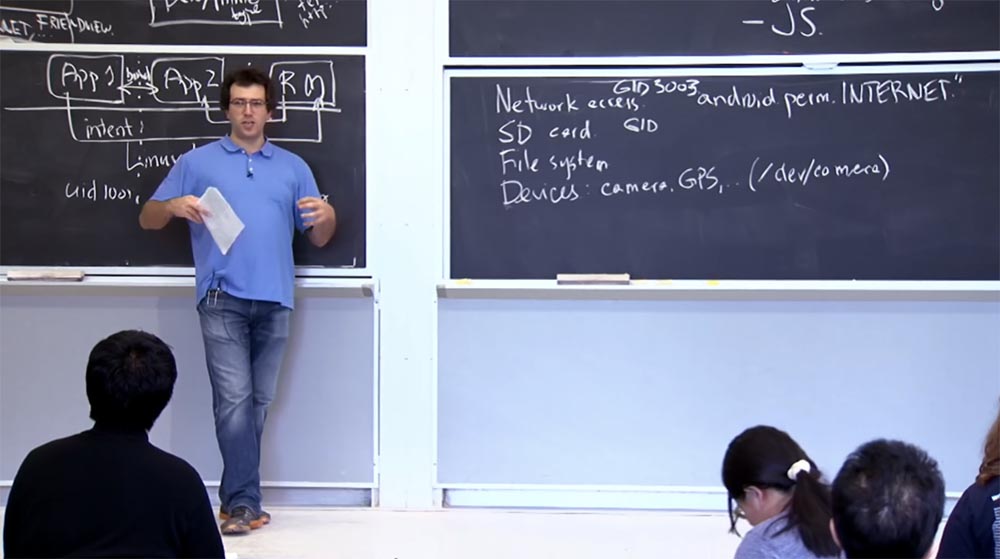 type
FRIENDVIEW.
App1
App2
RM
intent:
Linux
uid 1001,
- JS.
Network access. GID 3003 android.perm.INTERNET"
SD card. GID
File system
Devices: camera, GPS, .. (/dev/camera)